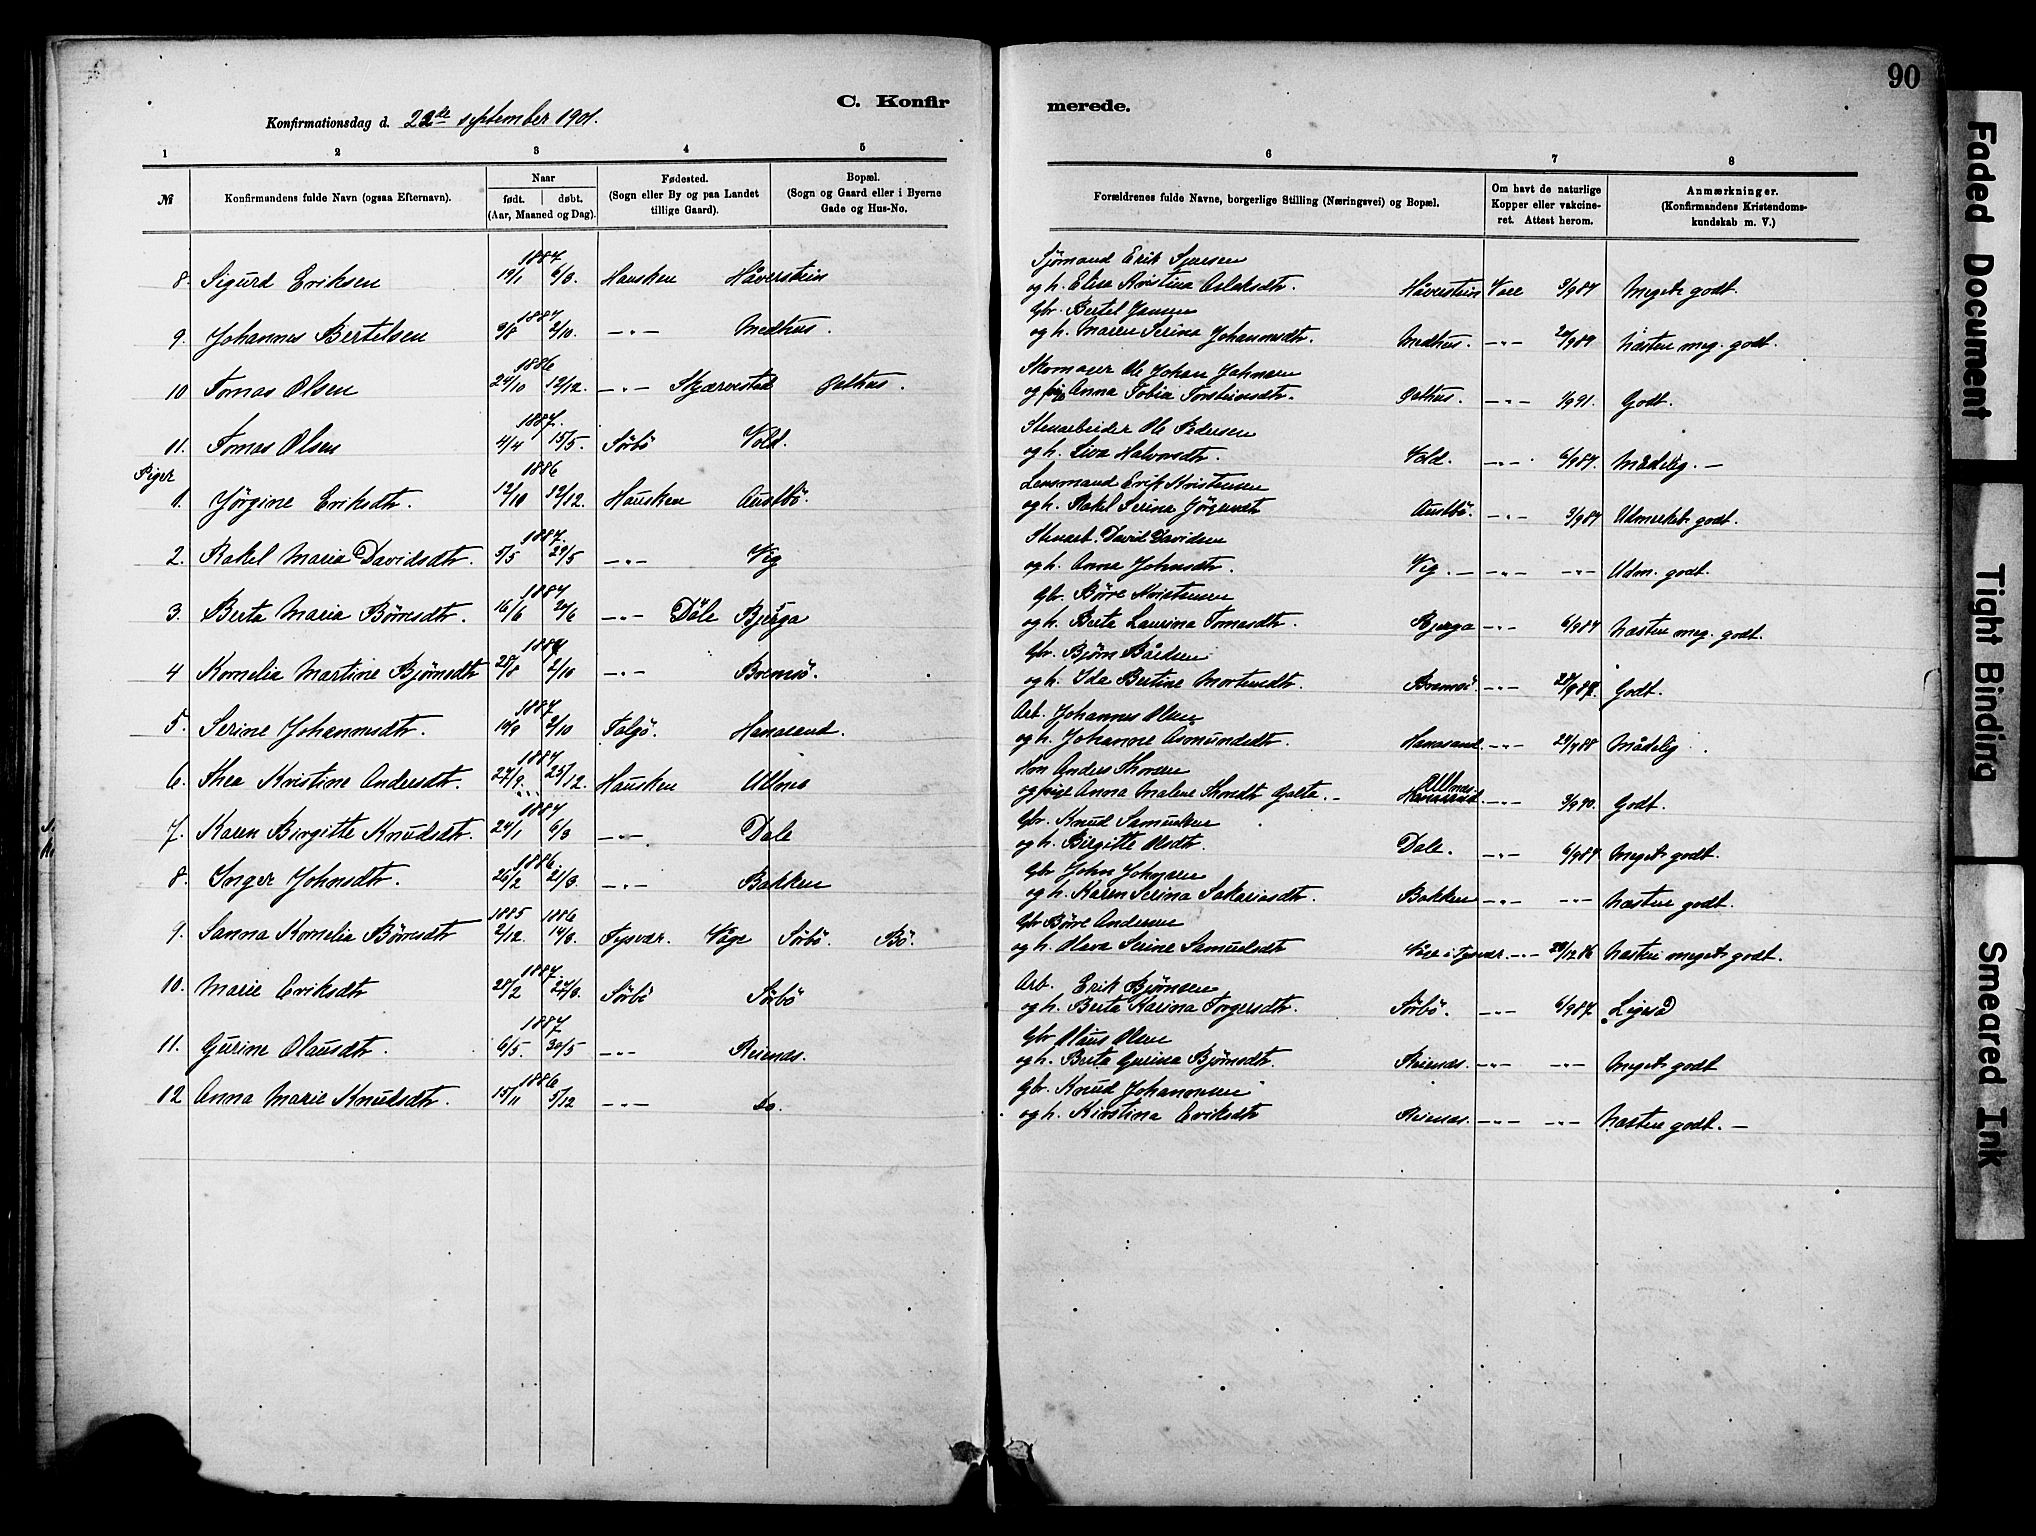 90
C. Konfirmerede.
Konfirmationsdag d. 22de september 1901.
1 2 3 4 5 6 7 8
№
Konfirmandens fulde Navn (ogsaa Efternavn).
Naar
født. døbt.
(Aar, Maaned og Dag).
Fødested.
(Sogn eller By og paa Landet
tillige Gaard).
Bopæl.
(Sogn og Gaard eller i Byerne
Gade og Hus-No.
Forældrenes fulde Navne, borgerlige Stilling (Næringsvei) og Bopæl.
Om havt de naturlige
Kopper eller vakcine-
ret. Attest herom.
Anmærkninger.
(Konfirmandens Kristendoms-
kundskab m. V.)
1887 Sjømand Erik
8. Sigurd Eriksen 19/1 6/3. Hausken Håverstein og h. Elisa Kristina Aslaksdtr. Håverstein Vacc 3/9 87 Meget godt.
1887 Gbr. Bertel Jansen
9. Johannes Bertelsen 9/8 2/10. —"— Medhus. og h. Maren Serina Johannesdtr. Medhus. —"— 20/9 89 Næsten meg. godt.
1886 Skomager Ole Johan Johnsen
10 Tomas Olsen 24/10 12/12. —"— Skjærvestad Galthus. og pige Anna Tobia Torsteinsdtr. Galthus. —"— 1/9 91. Godt.
1887. Stenarbeider Ole Pedersen
11. Tomas Olsen 4/4 15/5. Sørbø Vold. og h. Liva Halvorsdtr. Vold. —"— 6/9 87. Mådelig. —
Piger 1886 Lensmand Erik Kristensen
1. Jørgine Eriksdtr. 12/10 12/12. Hausken Austbø. og h. Rakel Serina Jørgensdtr Austbø. —"— 3/9 87 Udmerket godt.
1887. Stenarb. David Davidsen
2. Rakel Maria Davidsdtr. 5/5 29/5 —"— Vig og h. Anna Johnsdtr. Vig. — —"— —"— Udm. godt.
1887 Gbr. Børre Kristensen
3. Berta Maria Børresdtr. 16/6 26/6 —"— Dale Bjerga og h. Berta Laurina Tomasdtr. Bjerga —"— 6/9 87 Næsten meg. godt.
1887 Gbr. Bjørn Bårdsen
4 Kornelia Martine Bjørnsdtr 28/8 2/10 —"— Bremsø. og h. Ida Bertine Mortensdtr. Bremsø. —"— Godt.
1887 Arb. Johannes Olsen
5. Serine Johannesdtr. 14/9 2/10 Talgø. Hanasand. og h. Johanne Asmundsdtr. Hanasand —"— 29/9 88 Mådelig.
1887 Anders Thorsen
6. Thea Kristine Andersdtr. 27/9. 25/12. Hausken Ullnes og pige Anna Malene Thorsdtr Galta. — Ullnes —"— 3/9 90. Godt.
1887 Gbr. Knud Samuelsen
7. Karen Birgitte Knudsdtr. 24/1 6/3 —"— Dale og h. Birgitte Olsdtr. Dale. —"— 6/9 87 Meget godt.
1886. Gbr John Johnsen
8. Inger Johnsdtr. 26/2 21/3. —"— Bakken og h. Karen Serina Sakariasdtr. Bakken —"— —"— Næsten godt.
1885 1886 Gbr Børre Andersen
9. Sanna Kornelia Børresdtr 2/12. 14/3. Tysvær. Våge Sørbø. Bø. og h. Olava Serine Samuelsdtr Våge i Tysvær. —"— 29/12 86 Næsten meget godt.
1887. Arb. Erik Bjørnsen
10. Marie Eriksdtr 25/2 27/3. Sørbø Sørbø og h. Berta Karina Torgersdtr. Sørbø. —"— 6/9 87. Ligeså
1887 Gbr Olaus Olsen
11. Gurine Olausdtr. 6/5. 30/5 —"— Reienes. og h. Berta Gurina Bjørnsdtr. Reienes. —"— —"— Meget godt
1886 Gbr. Knud Johannesen
12 Anna Marie Knudsdtr. 15/11 5/12 —"— Do. og h. Kirstina Eriksdtr Reienes. —"— —"— Næsten godt. —
Faded Document
Tight Binding
Smeared Ink